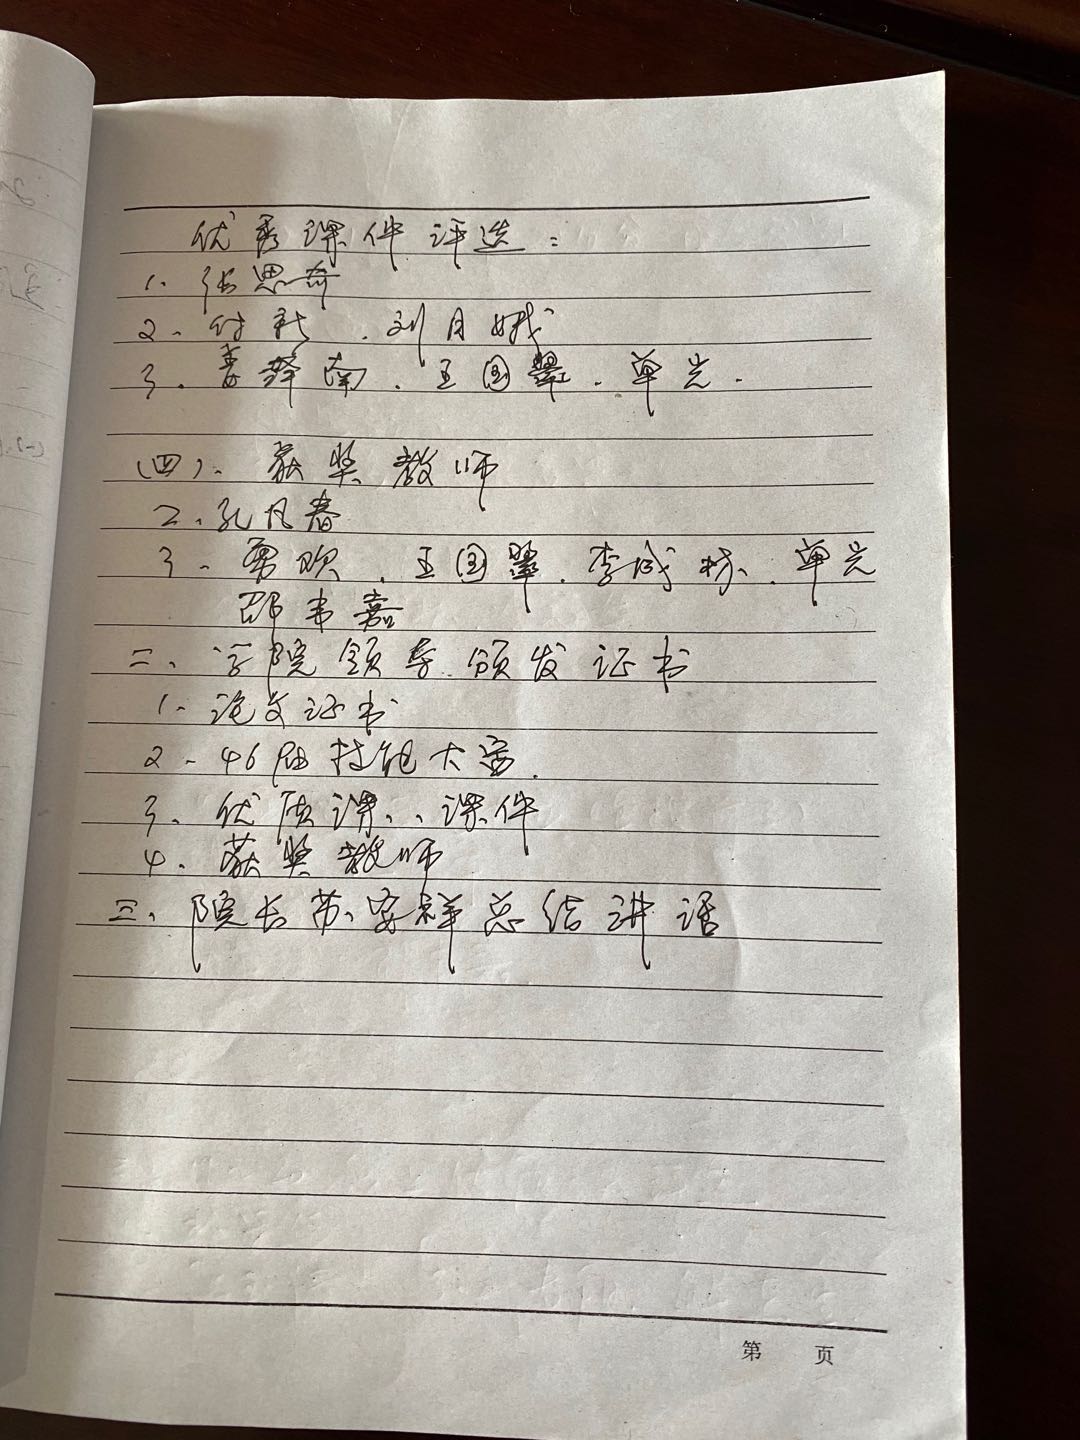 优秀课件评选：
1. 张思奇
2. 付新、刘月娥
3. 姜泽南、王国翠、单光.
(四)、获奖教师
2. 孔凡春
3. 王国翠、李成栋、单光
邵韦嘉
二、学院领导颁发证书
1. 论文证书
2. 46届技能大赛.
3. 优质课、课件
4. 获奖教师
三、院长苏安祥总结讲话
第 页